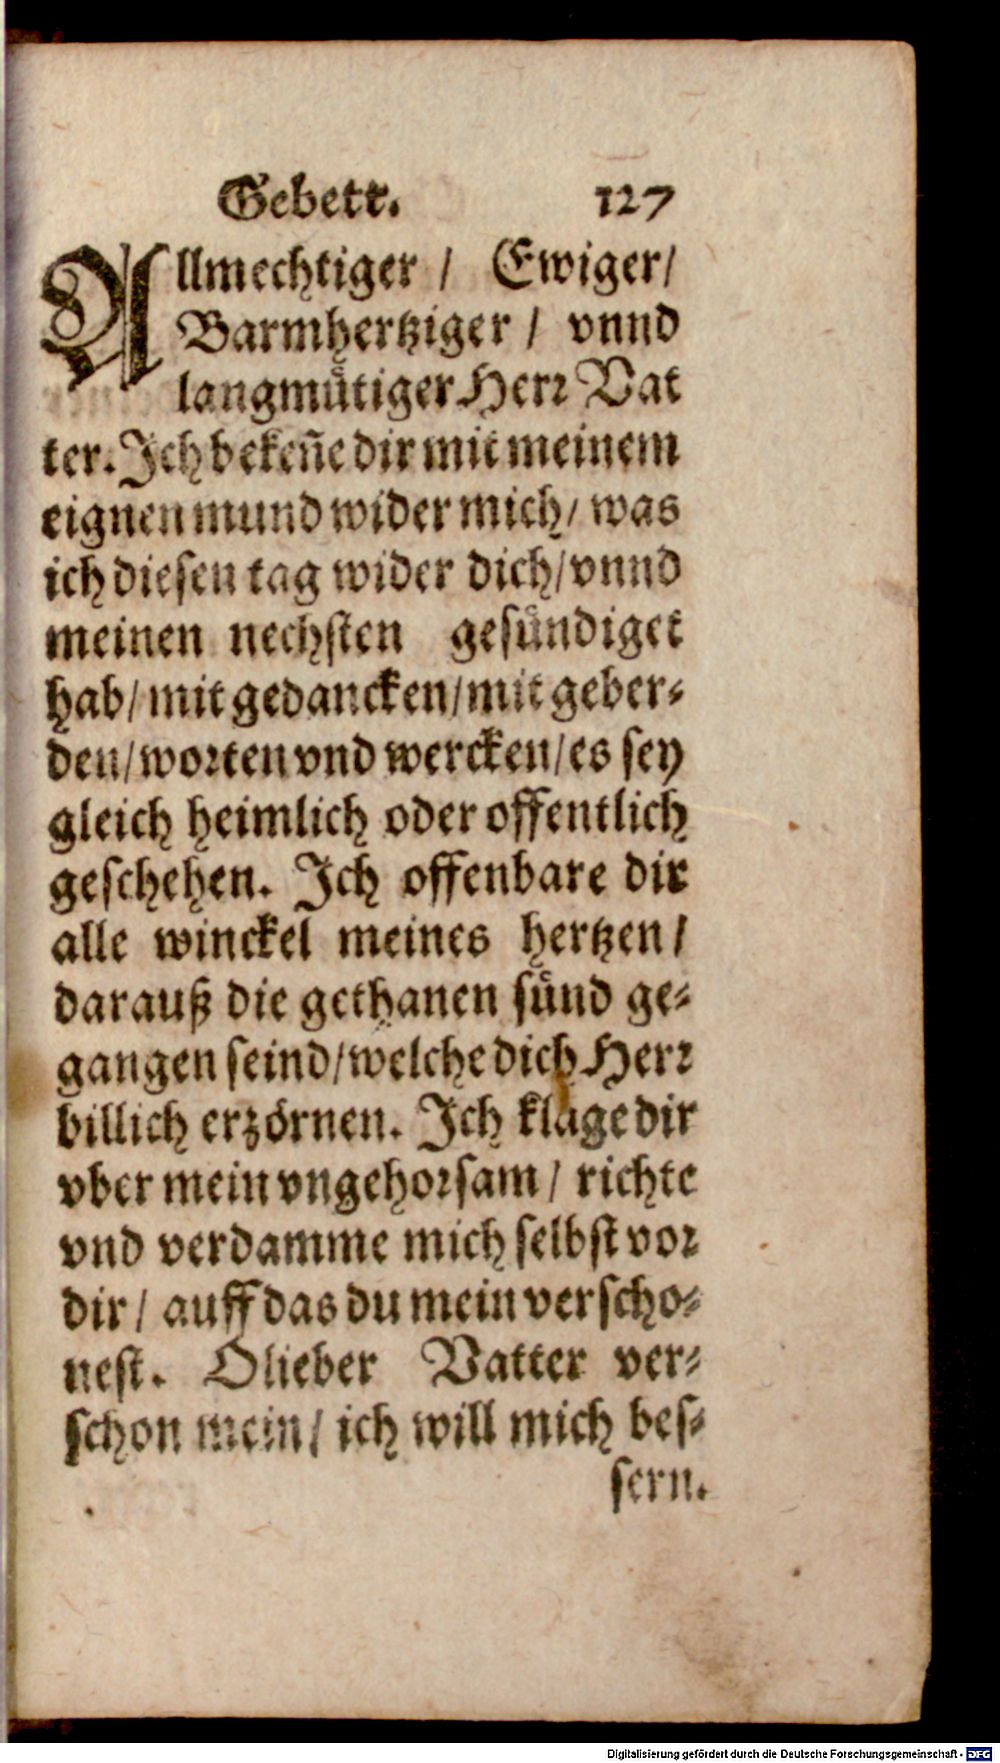 Gebett. 127
Allmechtiger / Ewiger/
Barmhertziger / vnnd
langmütiger Herr Vat
ter. Ich bekeñe dir mit meinem
eignen mund wider mich/ was
ich diesen tag wider dich/ vnnd
meinen nechsten gesündiget
hab/ mit gedancken/ mit geber-
den/ worten vnd wercken/ es sey
gleich heimlich oder offentlich
geschehen. Ich offenbare dir
alle winckel meines hertzen /
darauß die gethanen sünd ge-
gangen seind/ welche dich Herr
billich erzörnen. Ich klage dir
vber mein vngehorsam / richte
vnd verdamme mich selbst vor
dir / auff das du mein verscho-
nest. O lieber Vatter ver-
schon mein/ ich will mich bes-
sern.
Digitalisierung gefördert durch die Deutsche Forschungsgemeinschaft - DFG